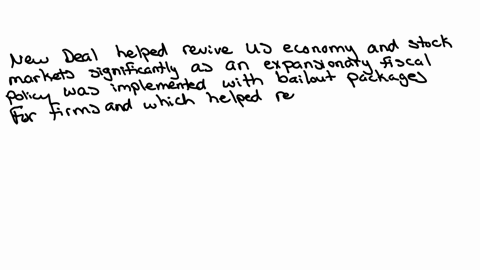 New Deal helped revive US economy and stock
markets significantly as an expansionary fiscal
policy was implemented with bailout packages
for firms and which helped re